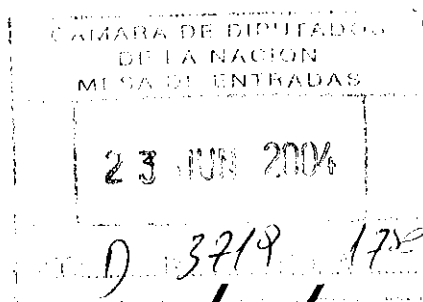 CAMARA DE DIPUTADOS
DE LA NACION
MESA DE ENTRADAS
23 JUN 2004
D 3719